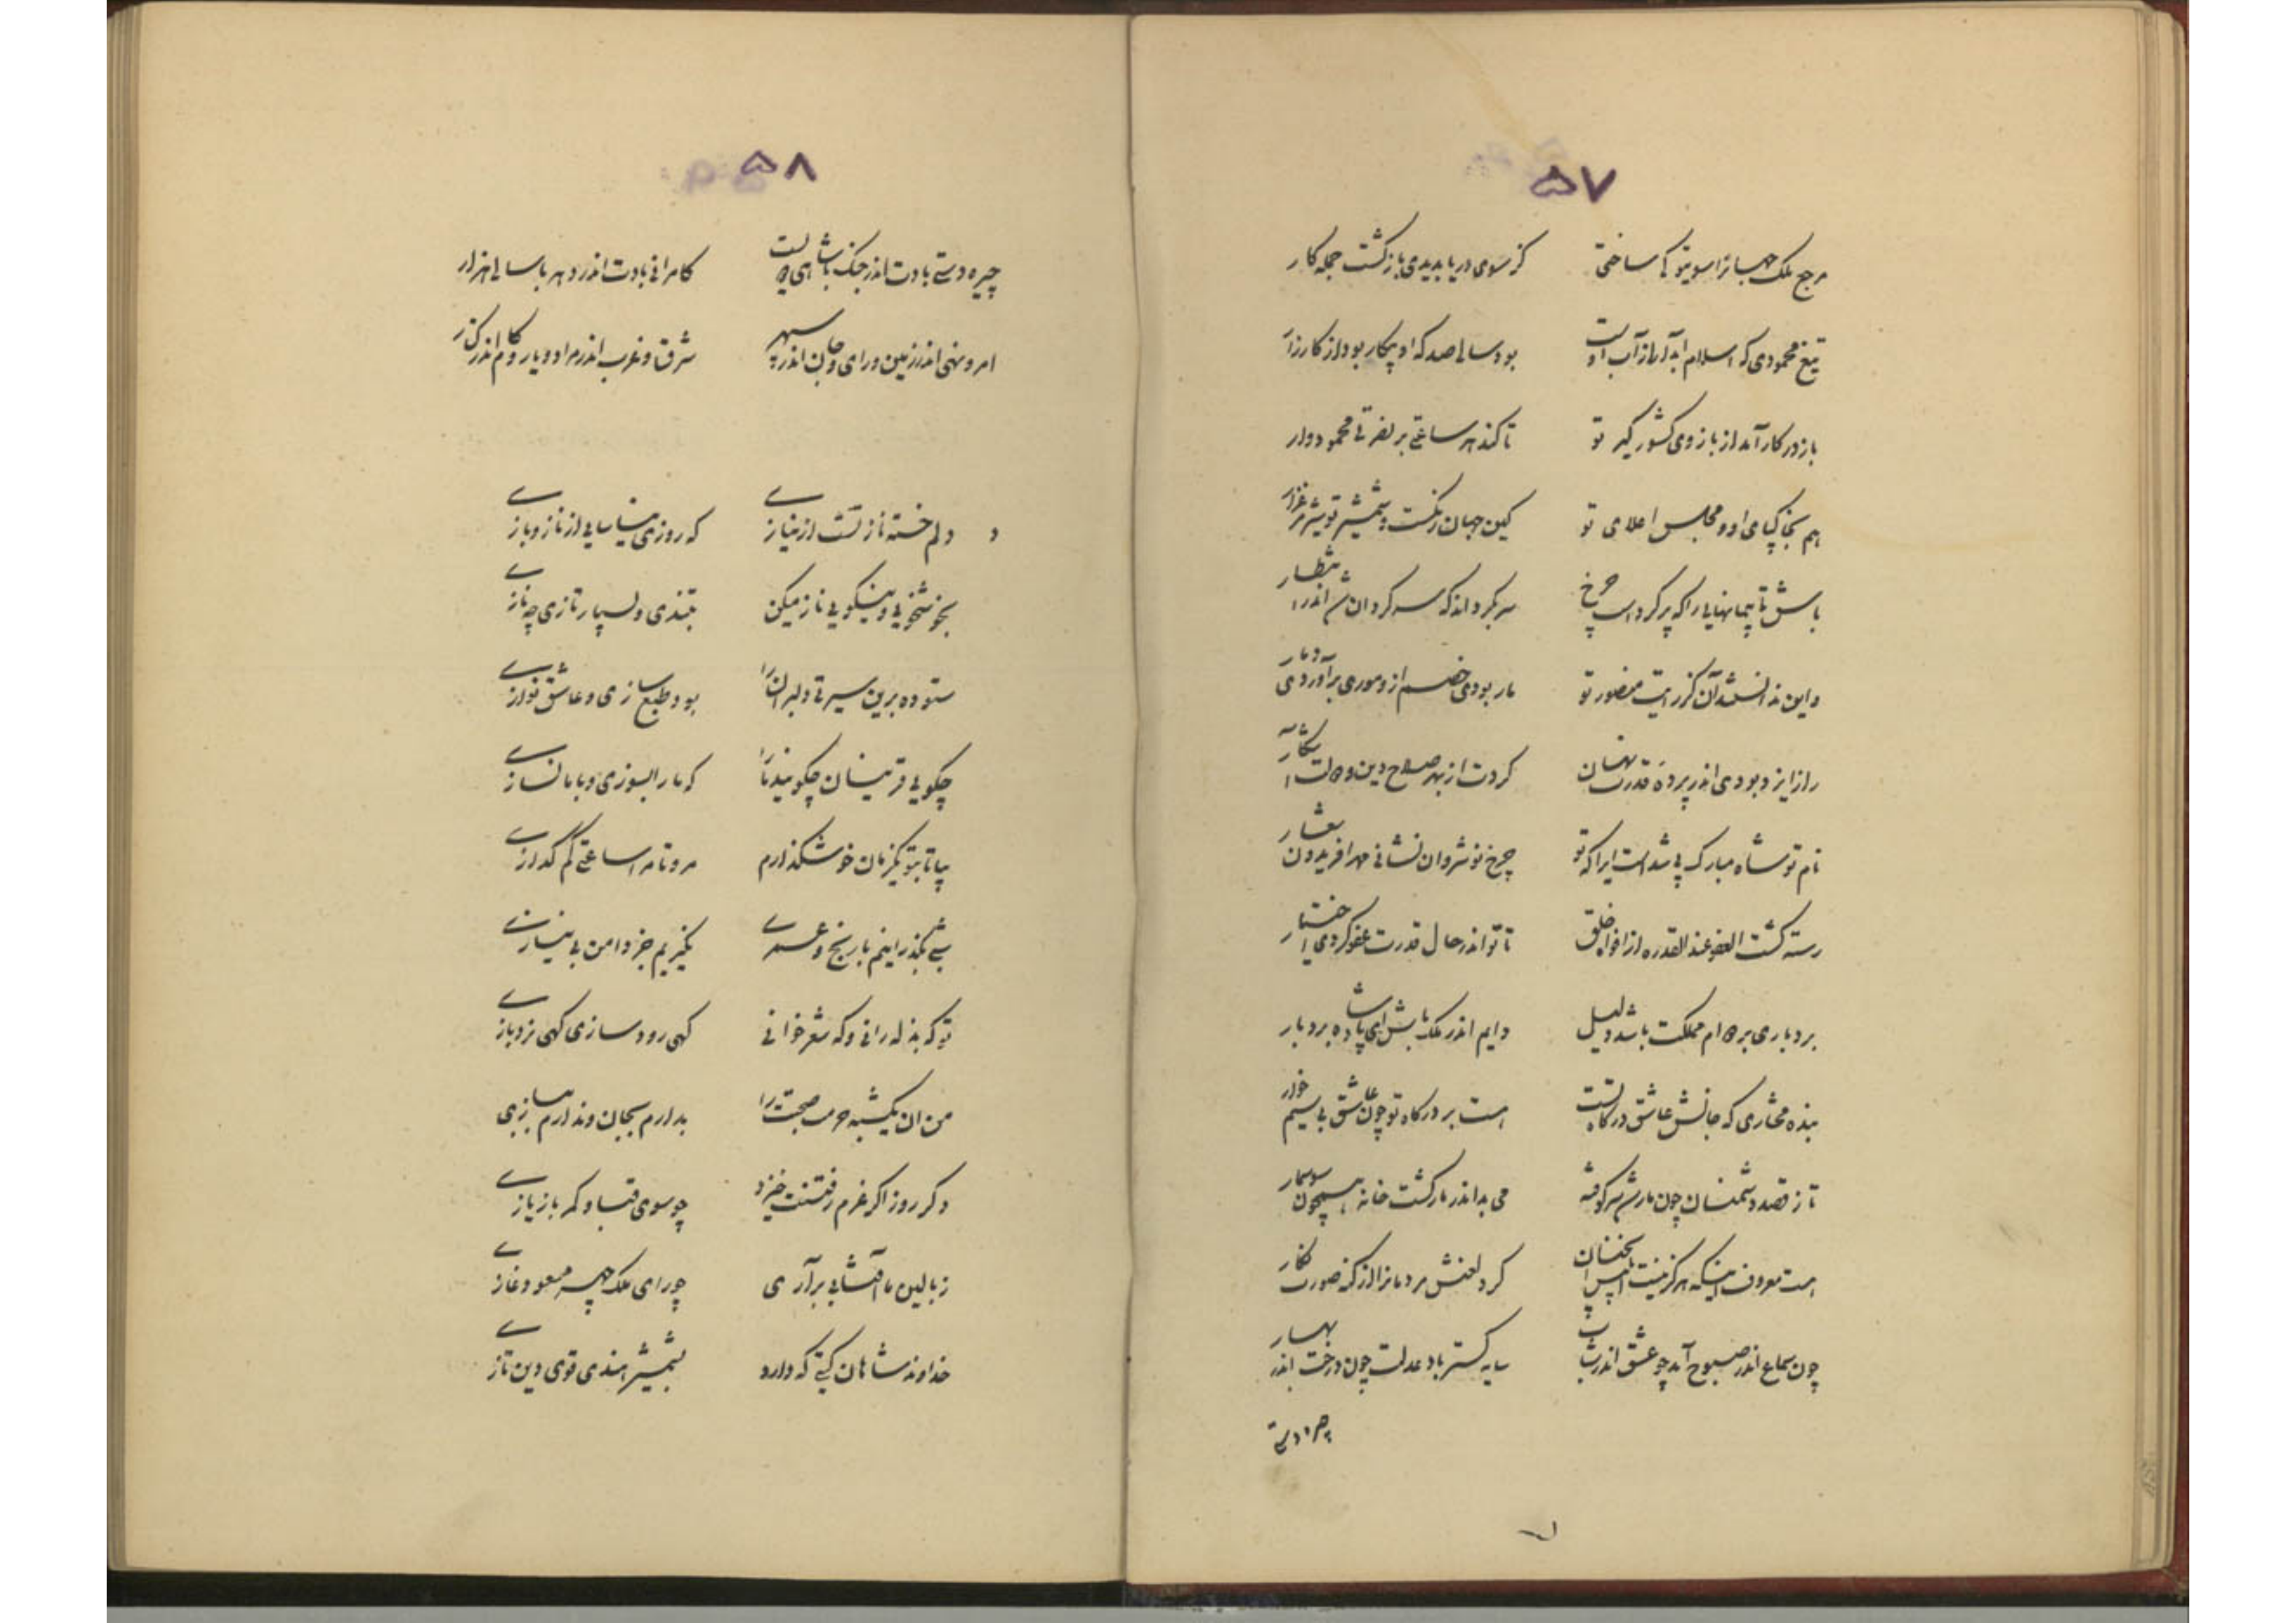 ۵۷
مرجع ملک جهانرا سوی تو ساختی کز سوی دریا بدیدی بازگشت جمله کار
تیغ محمودی که اسلام ابدار از آب اوست بود سالی صد که او بیکار بود از کارزار
باز در کار آمد از بازوی کشور گیر تو تا کند هر ساعتی بر نصرتی محمودوار
هم بخاکپای او و مجلس اعلای تو کین جهان زنگست و شمشیر تو شیر مرغزار
باش تا پیمانهایی را که پر کرد است چرخ سر بگرداند که سرگردانش اندر انتظار
و این ندانستند آن کز رایت منصور تو مار بودی خصم از و موری برآوردی دمار
راز ایزد بودی اندر پردهٔ قدرت نهان کردت از بهر صلاح دین و دولت آشکار
نام تو شاه مبارک پی شدست ایرا که تو چرخ نوشروان نشانی مهر افریدون شعار
رسته گشت العفو عند القدره از افواه خلق تا تو اندر حال قدرت عفو کردی اختیار
بردباری بر دوام مملکت باشد دلیل دایم اندر ملک باش ای پادشاه بردبار
بنده مختاری که جانش عاشق درگاه تست هست بر درگاه تو چون عاشق بی سیم خوار
تا ز قصد دشمنان چون مارش سرکوفته می بداند مار گشت خانه همچون سوسمار
هست معروف اینکه هرگز نیست کرد لعنش مردمانرا از کنه صورت نگار
چون سماع اندر صبوح آید چو عشق اندر شباب سایه گستر باد عدلت چون درخت اندر بهار
چیره دستی
۵۸
چیره دستی بادت اندر جنگ با شاهی کامرانی بادت اندر دهر با سالی هزار
امر و نهی اندر زمین و رای و جان اندر سپهر شرق و غرب اندر مراد و یار و کام اندر کنار
دلم خسته ناز تست از نیازی که روزی نیاسایی از ناز و بازی
بخوشخویی و نیکویی ناز میکن بتندی و بسیار تازی چه نازی
ستوده برین سیرتی دلبران را بود طبع سازی و عاشق نوازی
چگویی قرینان چگویند ما را که ما را بسوزی و با ما نسازی
بیا تا بتو یکزمان خوش گذارم مرو تا مرا ساعتی کم گدازی
شبی بگذرانیم با رنج و عمری نگیریم جز دامن بی نیازی
تو که بذله رانی و که شعر خوانی گهی رود سازی گهی نرد بازی
من ان یکشبه حرمت صحبتت را بدارم بجان و ندارم ببازی
دگر روز اگر عزم رفتنت خیزد چو سوی قبا و کمر باز یازی
ز بالین ما آفتابی برآری چو رای ملک چهر مسعود غازی
خداوند شاهان گیتی که دارد بشمشیر هندی قوی دین تازی